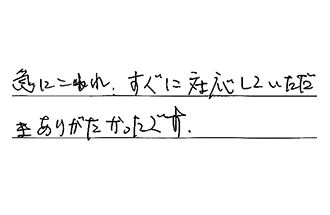 急にこわれ、すぐに対応していただ
きありがたかったです。